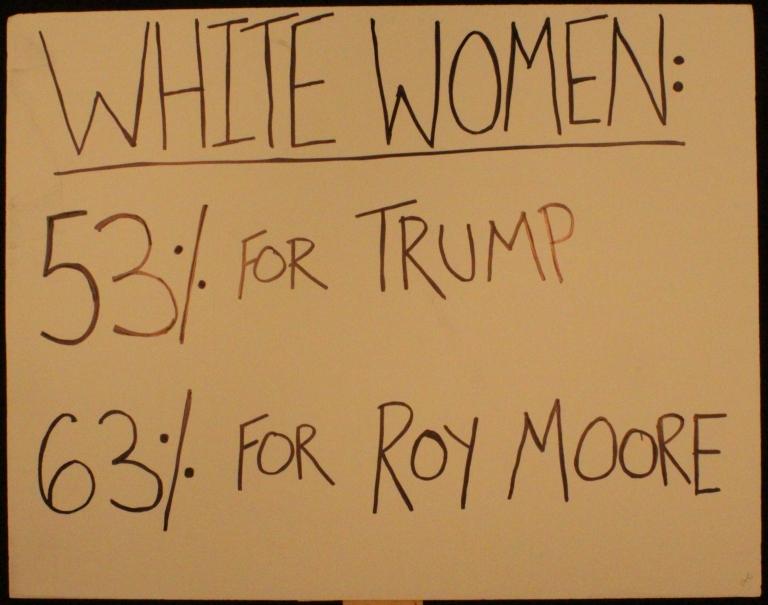 WHITE WOMEN:
53% FOR TRUMP
63% FOR ROY MOORE